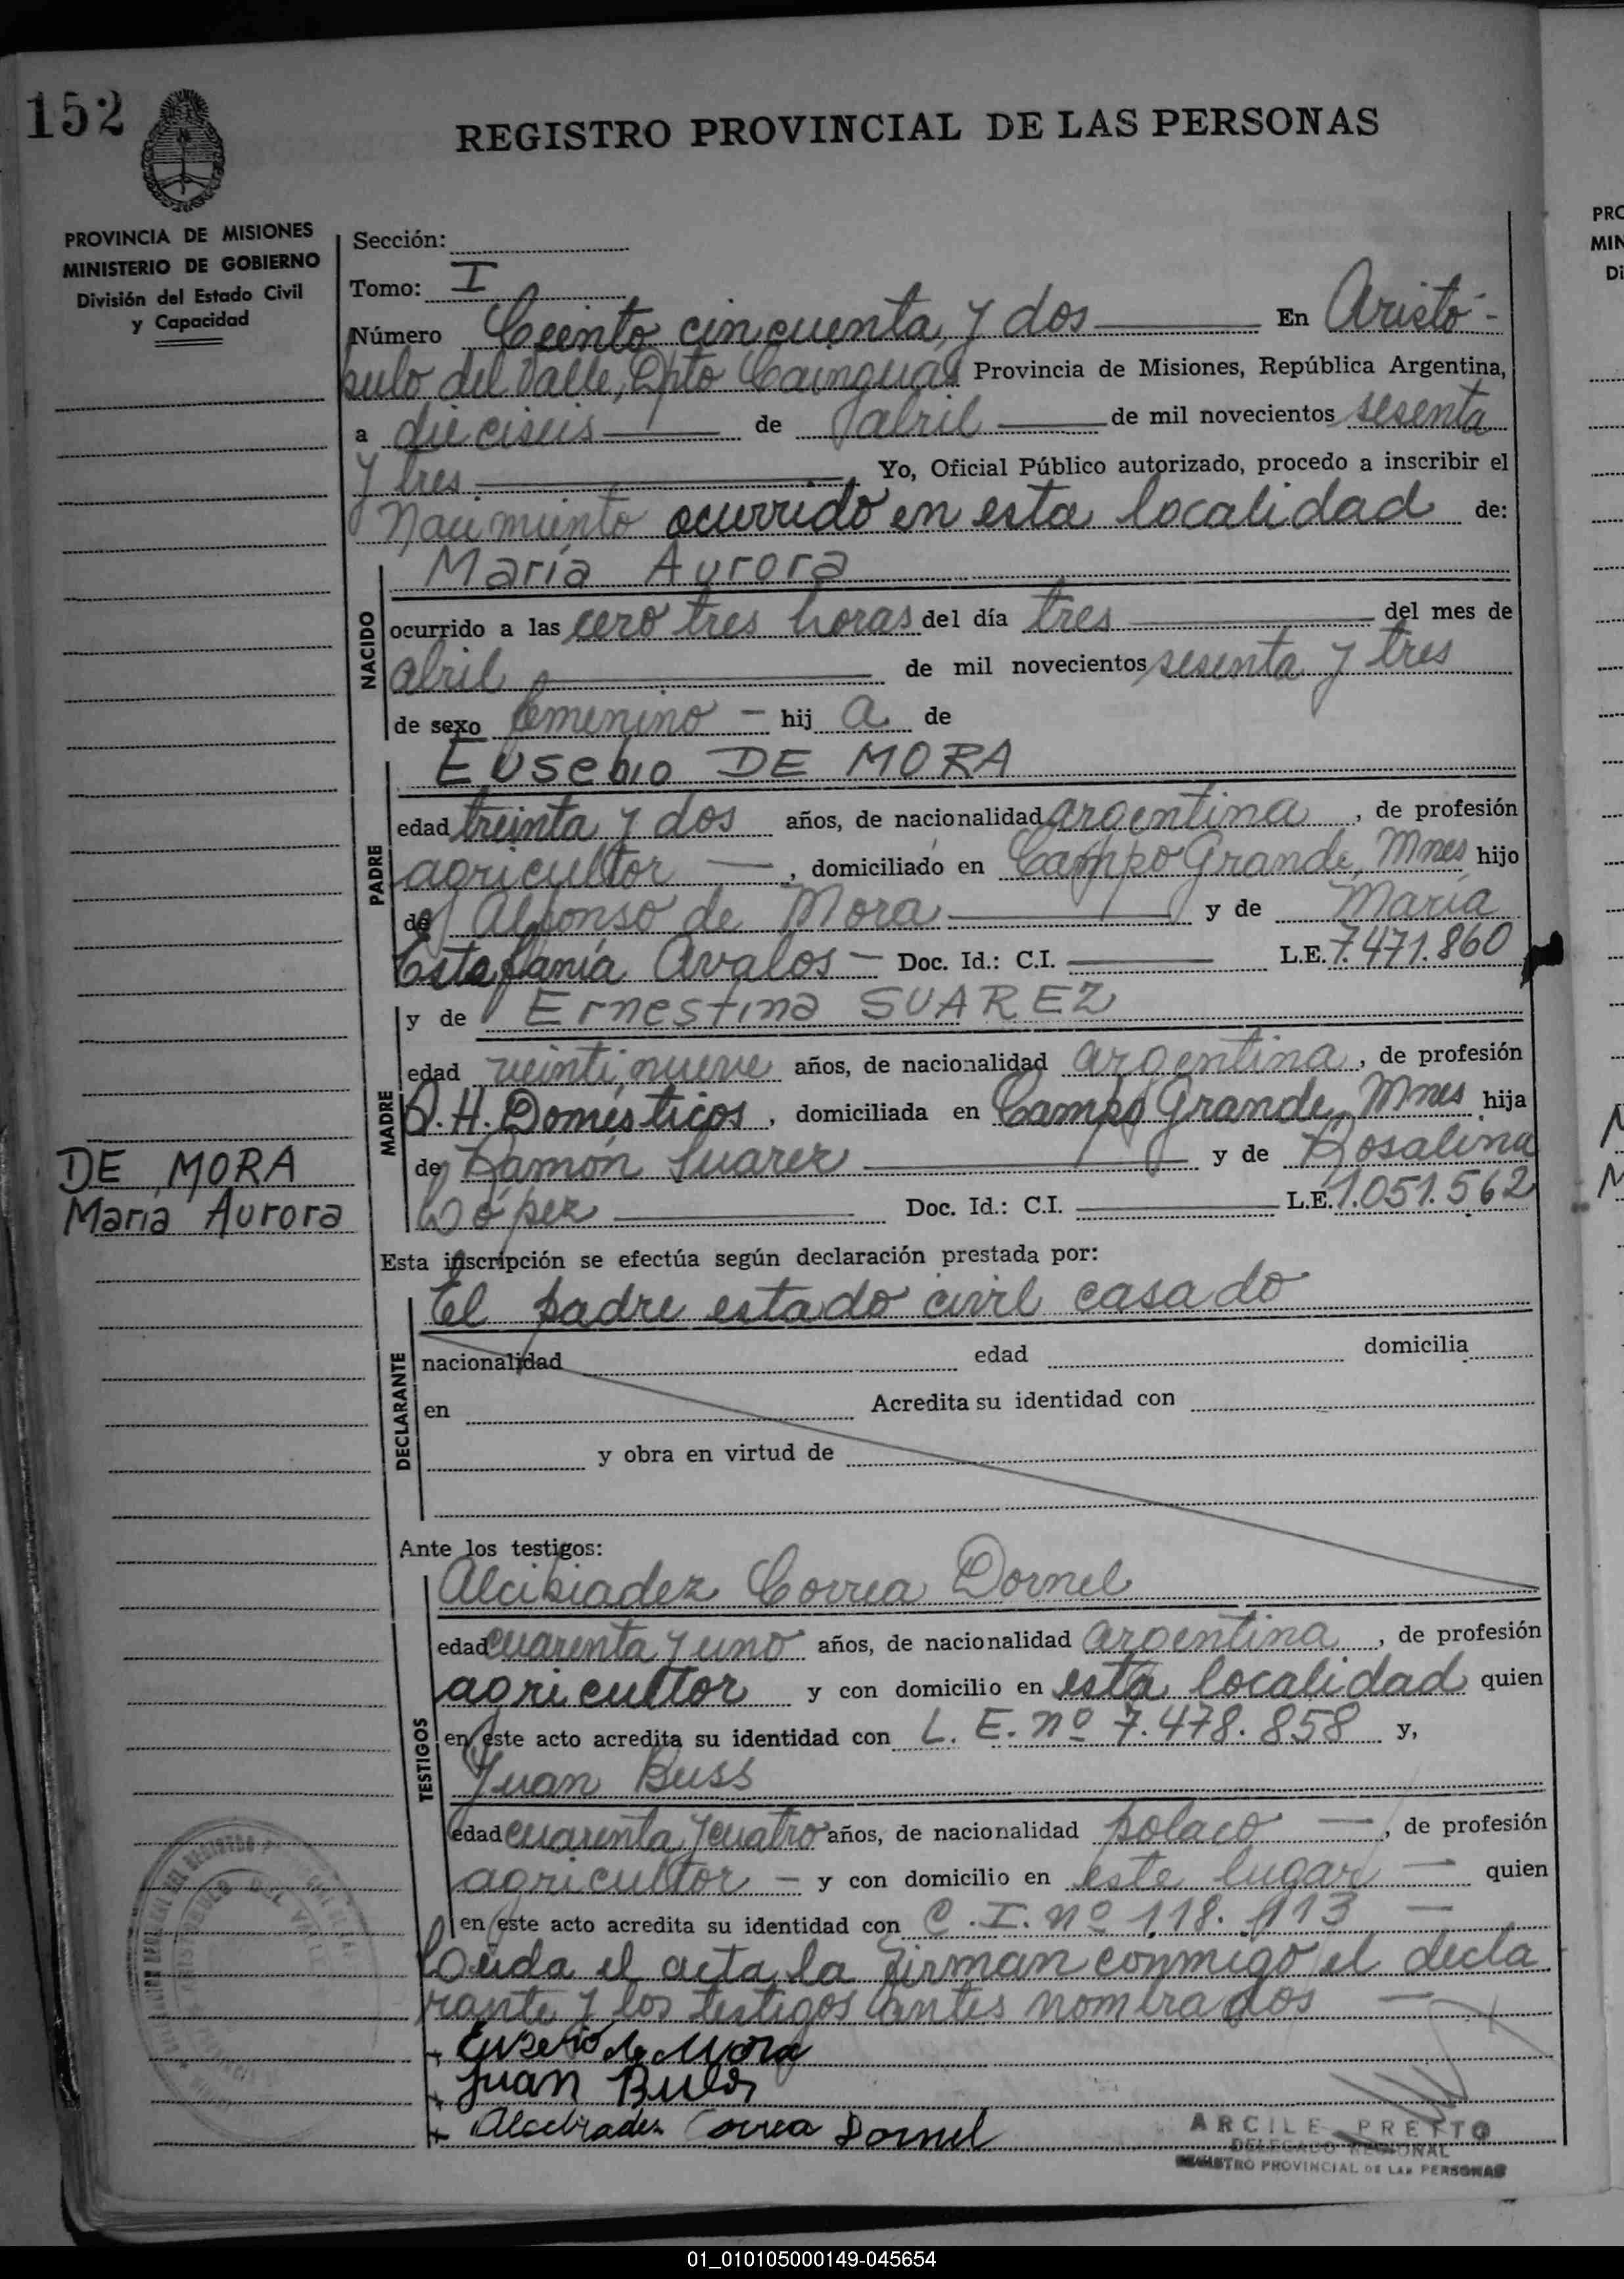 152
REGISTRO PROVINCIAL DE LAS PERSONAS
PROVINCIA DE MISIONES
MINISTERIO DE GOBIERNO
División del Estado Civil
y Capacidad
Sección:
Tomo: I
Número Ciento cincuenta y dos En Aristó-
bulo del Valle, Dpto Cainguás Provincia de Misiones, República Argentina,
a dieciseis de abril de mil novecientos sesenta
y tres Yo, Oficial Público autorizado, procedo a inscribir el
Nacimiento ocurrido en esta localidad de:
NACIDO
María Aurora
ocurrido a las cero tres horas del día tres del mes de
abril de mil novecientos sesenta y tres
de sexo femenino - hij a de
PADRE
Eusebio DE MORA
edad treinta y dos años, de nacionalidad argentina, de profesión
agricultor, domiciliado en Campo Grande, Mnes hijo
de Alfonso de Mora y de María
Estefanía Avalos - Doc. Id.: C.I. L.E. 7.471.860
MADRE
y de Ernestina SUAREZ
edad veintinueve años, de nacionalidad argentina, de profesión
Q.H. Domésticos, domiciliada en Campo Grande, Mnes hija
de Ramón Suarez y de Rosalina
López Doc. Id.: C.I. L.E. 1.051.562
DE MORA
Maria Aurora
Esta inscripción se efectúa según declaración prestada por:
DECLARANTE
El padre estado civil casado
nacionalidad edad domicilia
en Acredita su identidad con
y obra en virtud de
Ante los testigos:
TESTIGOS
Alcibiadez Correa Dornel
edad cuarenta y uno años, de nacionalidad argentina, de profesión
agricultor y con domicilio en esta localidad quien
en este acto acredita su identidad con L. E. nº 7.478.858 y,
Juan Buss
edad cuarenta y cuatro años, de nacionalidad polaco -, de profesión
agricultor - y con domicilio en este lugar - quien
en este acto acredita su identidad con C.I. nº 118.113 -
Leída el acta, la firman conmigo el decla
rante y los testigos antes nombrados -
Eusebio de Mora
Juan Buss
Alcebiades Correa Dornel
ARCILE PRETTO
DELEGADO REGIONAL
REGISTRO PROVINCIAL DE LAS PERSONAS
01_010105000149-045654